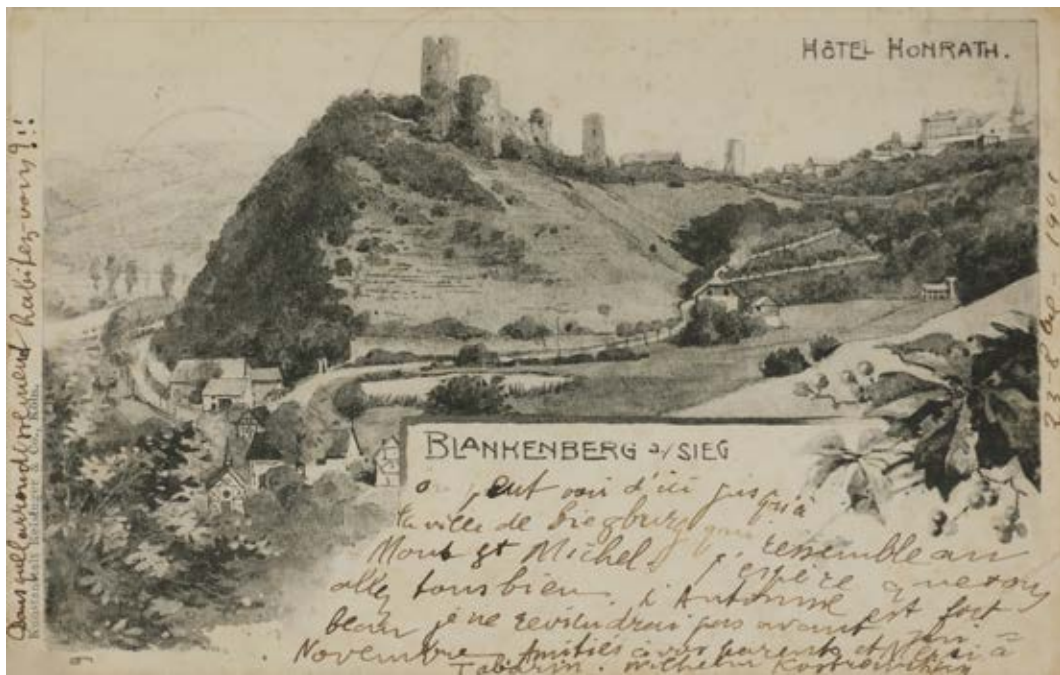 HÔTEL HONRATH.
BLANKENBERG a/ SIEG
on peut voir d'ici jusqu'à
la ville de Siegburg qui
ressemble au
Mont St Michel. j'espère que vous
allez tous bien. L'Automne est fort
beau je ne reviendrai pas avant fin
Novembre. Amitiés à vos parents et Merci à
Tabarin. Wilhelm Kostrowitzky
Dans quel arrondissement habitez-vous ?!!
Kunstanstalt & Co., Köln.